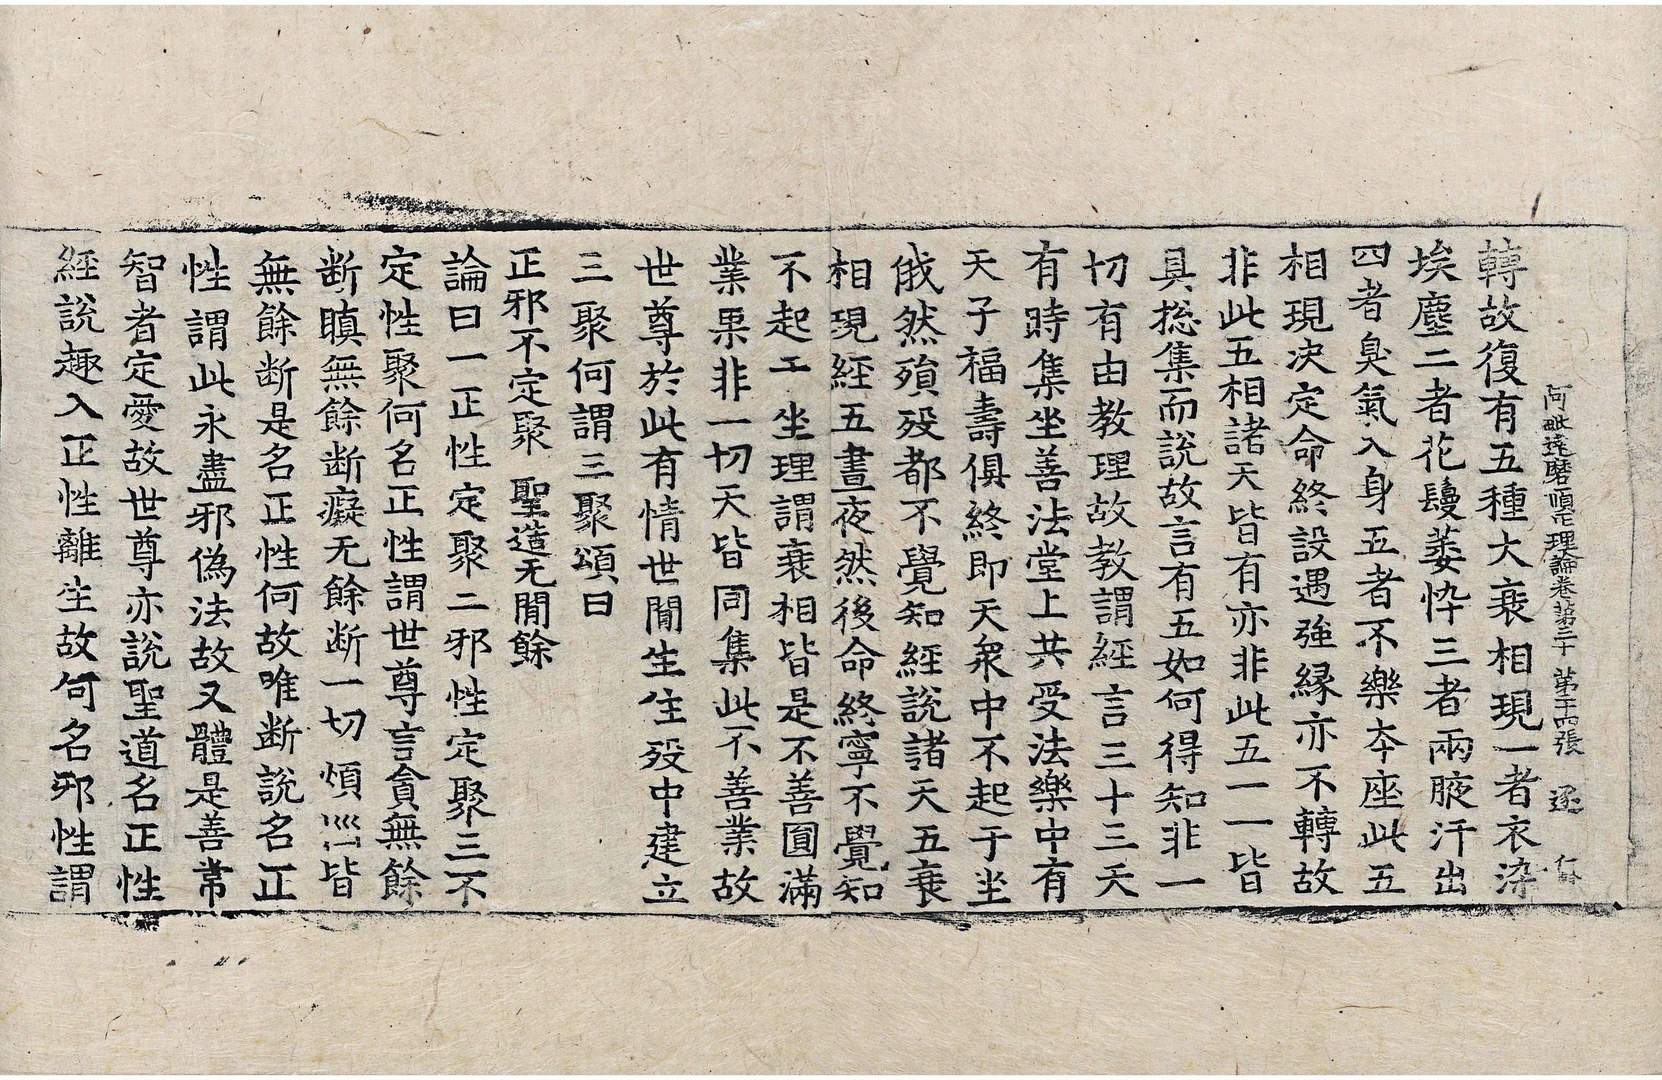 阿毗達磨順正理論卷第三十 第十四張 逐 仁
轉故復有五種大衰相現一者衣染
埃塵二者花鬘萎悴三者兩腋汗出
四者臭氣入身五者不樂夲座此五
相現決定命終設遇強縁亦不轉故
非此五相諸天皆有亦非此五一一皆
具捴集而說故言有五如何得知非一
切有由教理故教謂經言三十三天
有時集坐善法堂上共受法樂中有
天子福壽俱終即天衆中不起于坐
俄然殞歿都不覺知經說諸天五衰
相現經五晝夜然後命終寧不覺知
不起于坐理謂衰相皆是不善圓滿
業果非一切天皆同集此不善業故
世尊於此有情世閒生住歿中建立
三聚何謂三聚頌曰
正邪不定聚 聖造无閒餘
論曰一正性定聚二邪性定聚三不
定性聚何名正性謂世尊言貪無餘
断瞋無餘断癡无餘断一切煩惱皆
無餘断是名正性何故唯断說名正
性謂此永盡邪偽法故又體是善常
智者定愛故世尊亦說聖道名正性
經說趣入正性離生故何名邪性謂